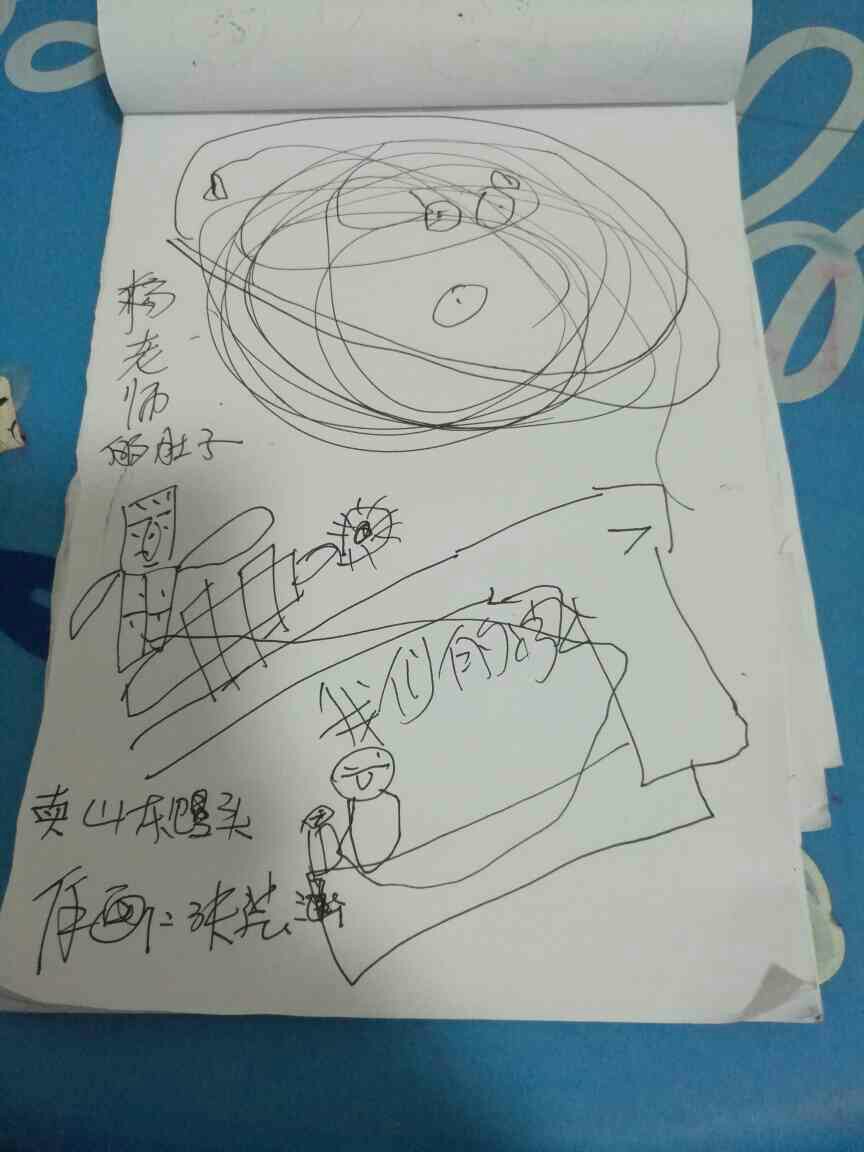 杨老师
的肚子
我们的
卖山东馒头
作画